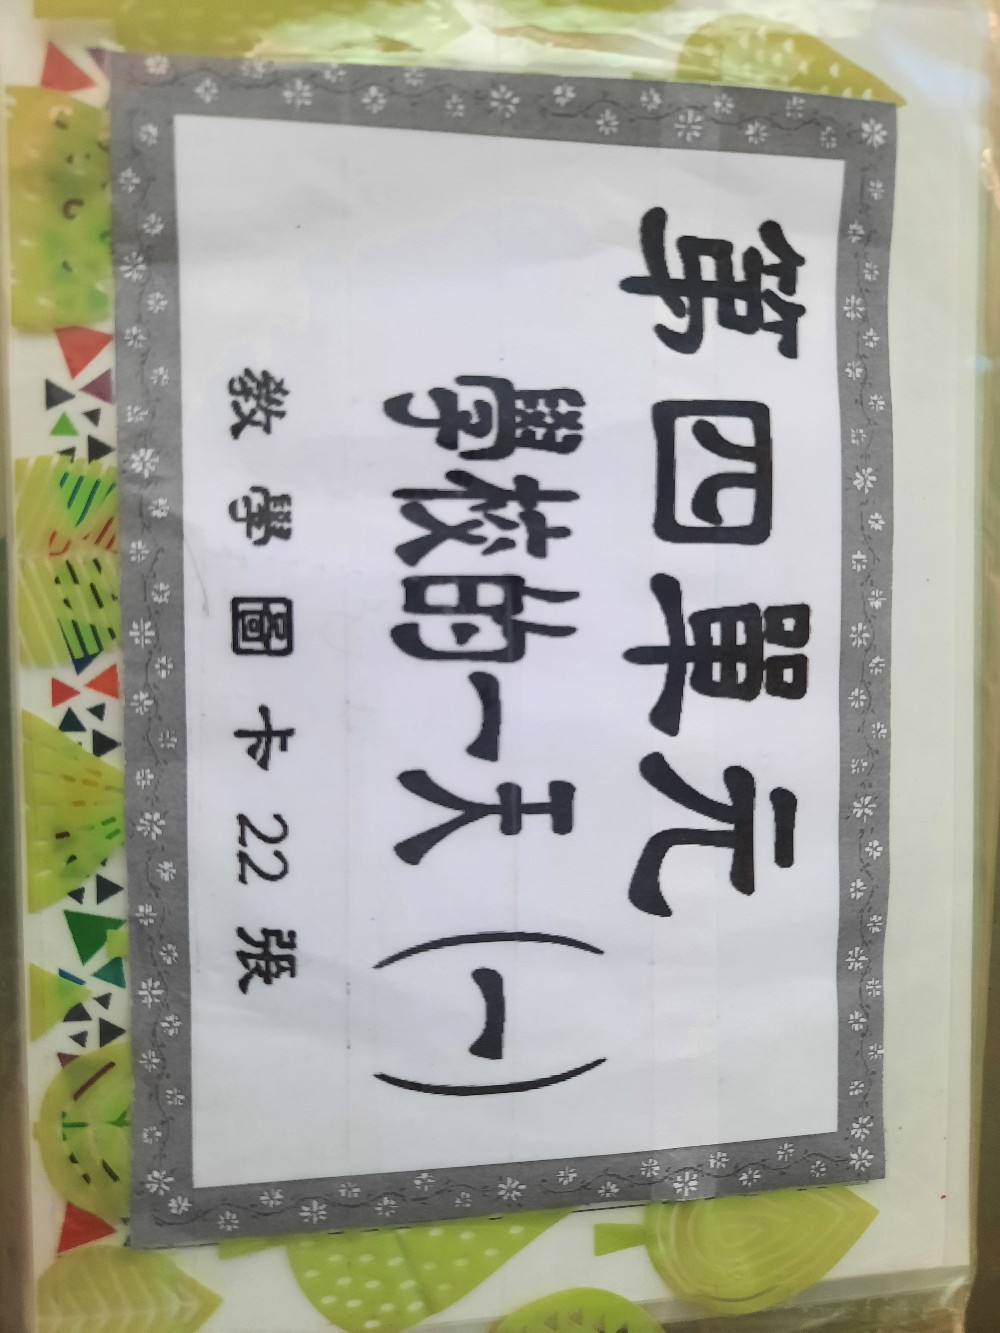 第四單元
學校的一天(一)
教學圖卡22張